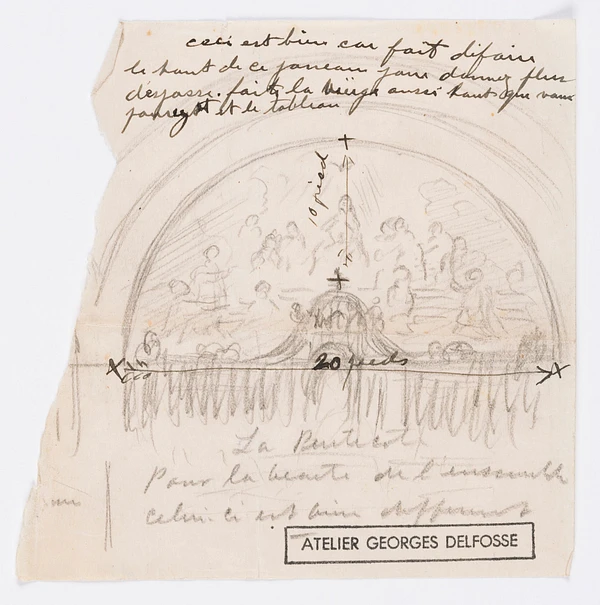 ceci est bien car fait difaire
le haut de ce paneau pour donner plus
d'espasse. faite la vierge aussi haut que vous
et le tableau
10 pied
20 pieds
La Pentecote
Pour la beaute de l'enssemble
celui ci est bien different
ATELIER GEORGES DELFOSSE